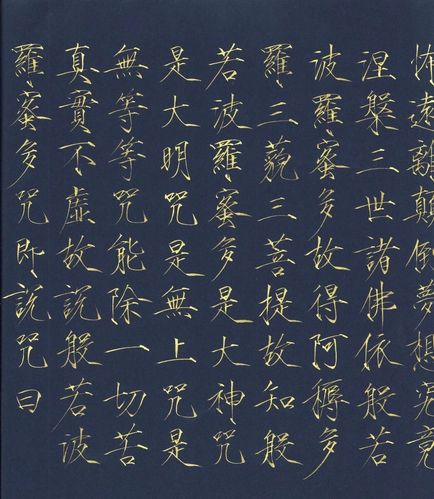 怖遠離顛倒夢想究竟
涅槃三世諸佛依般若
波羅蜜多故得阿耨多
羅三藐三菩提故知般
若波羅蜜多是大神咒
是大明咒是無上咒是
無等等咒能除一切苦
真實不虛故說般若波
羅蜜多咒即說咒曰